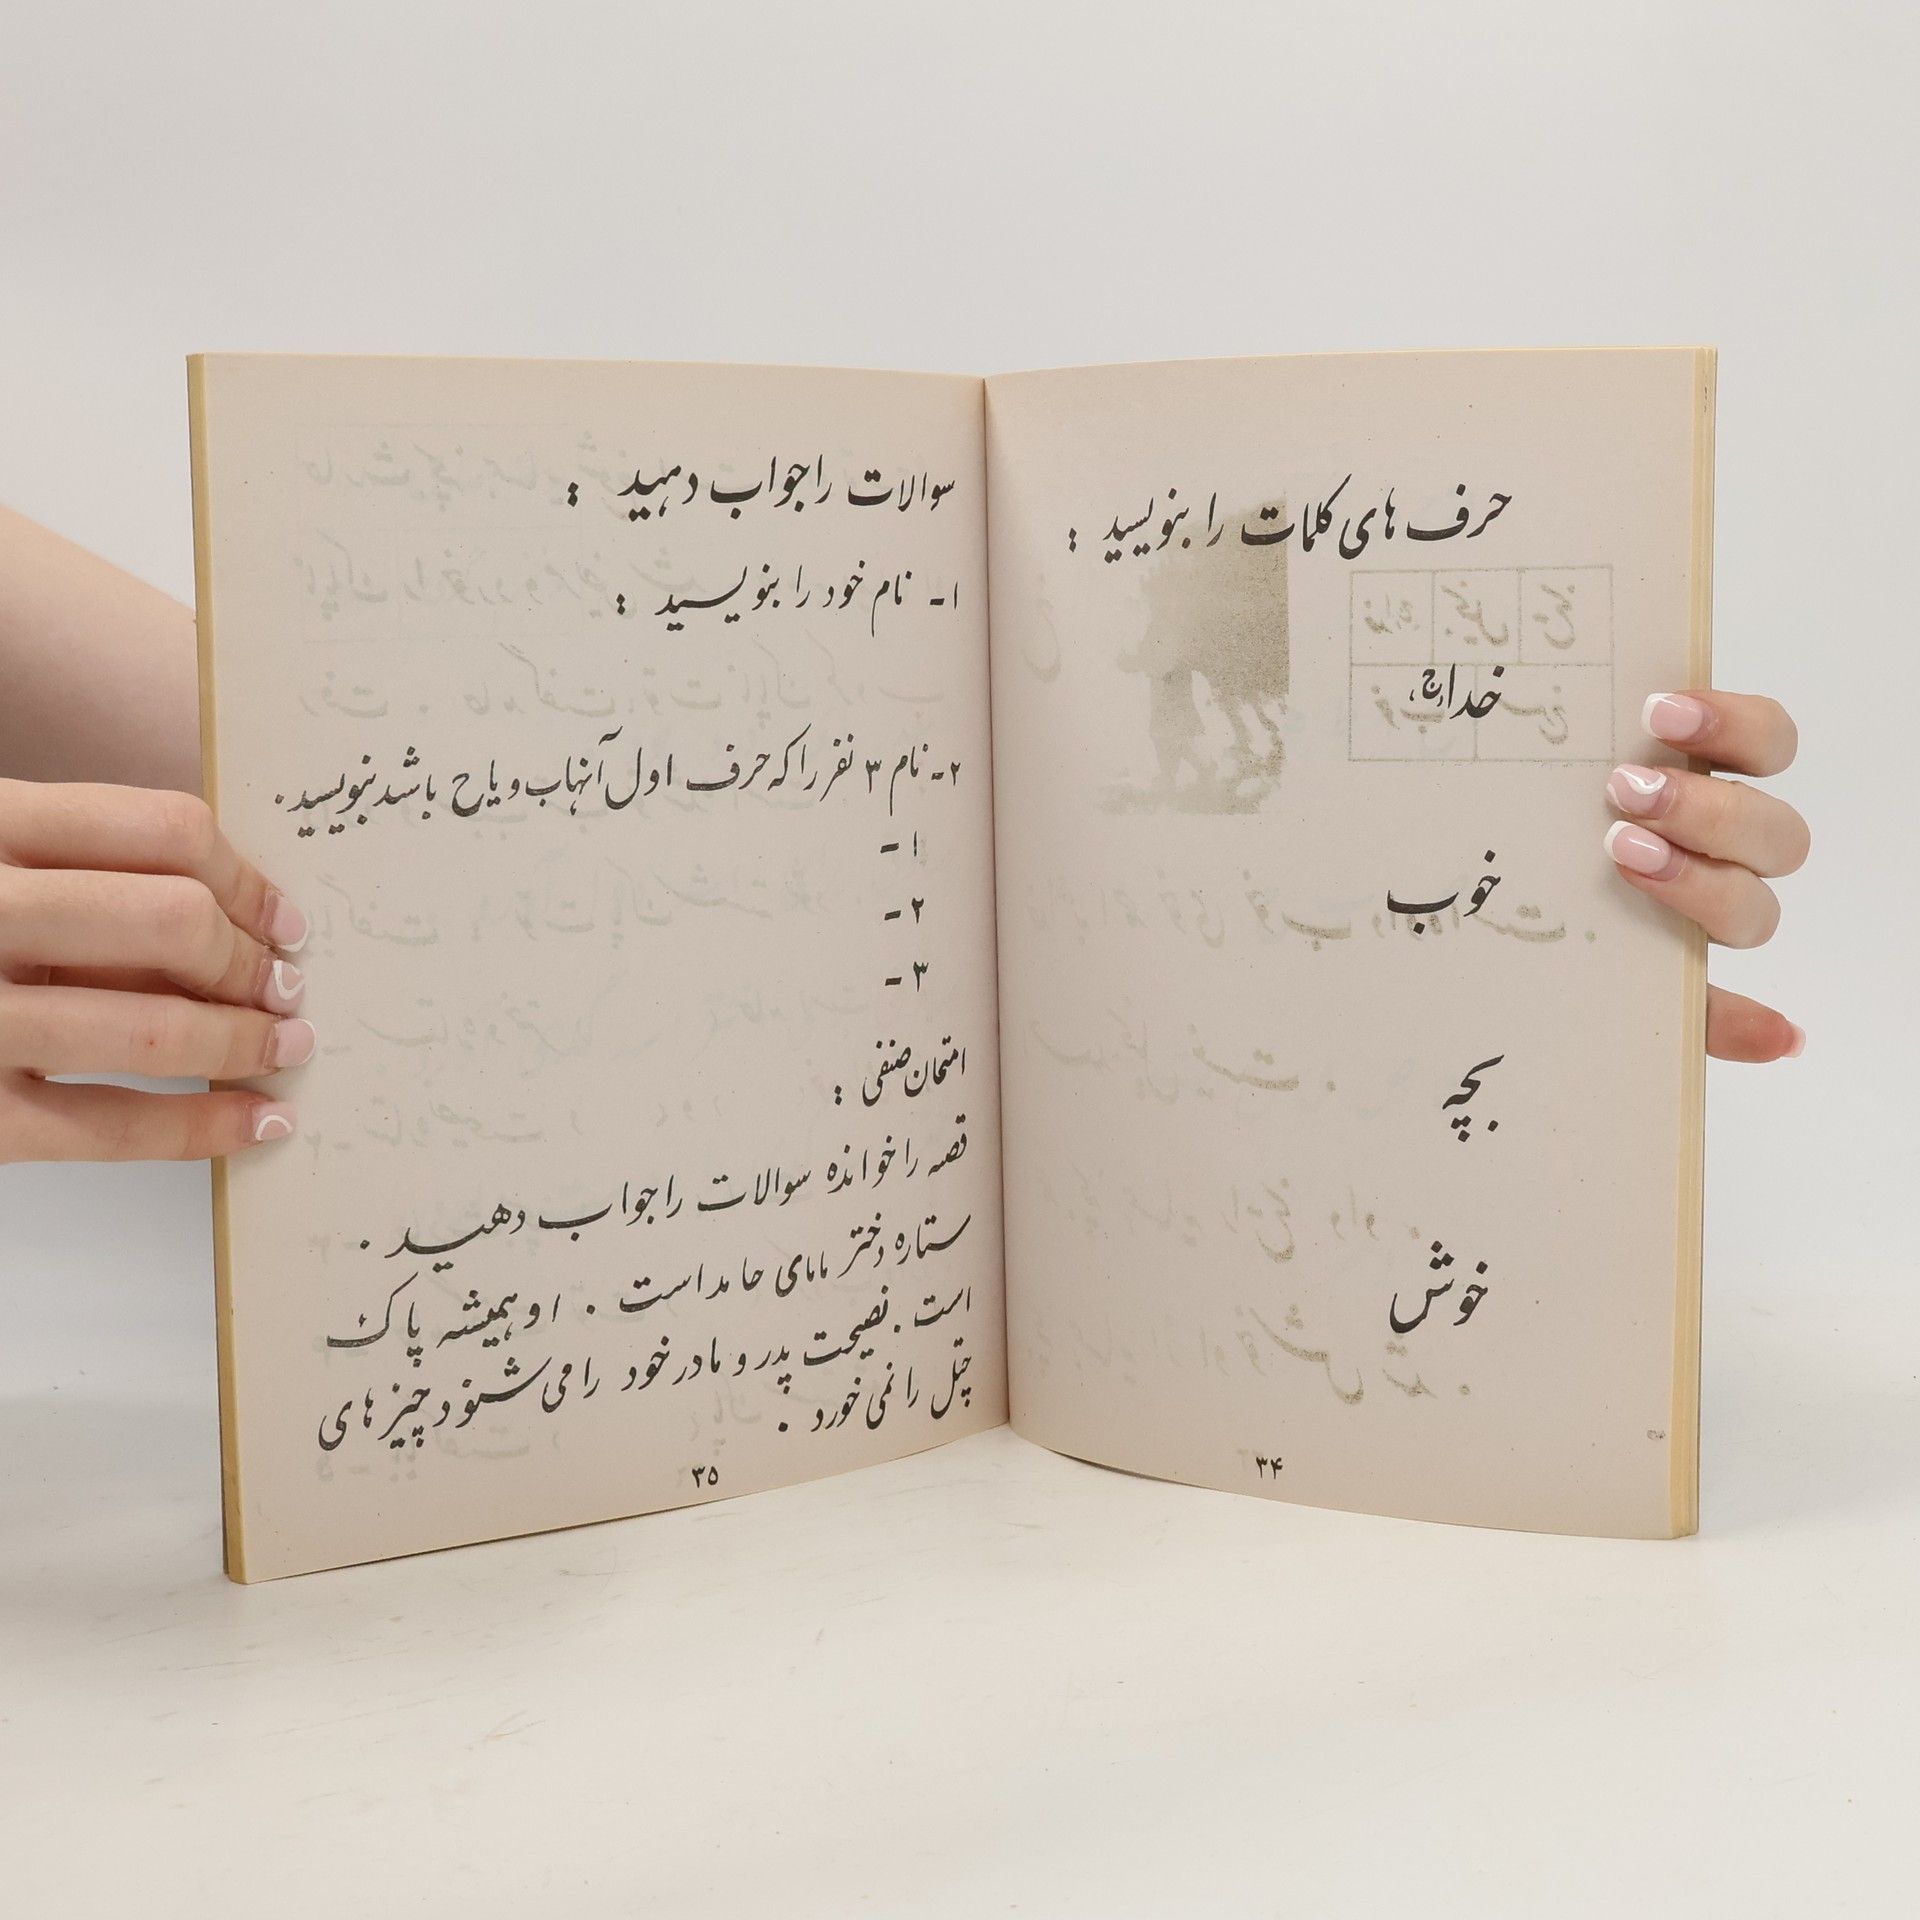 حرف های کلمات را بنویسید :
خدا(ج)
خوب
بچه
خوش
۳۴
سوالات را جواب دهید :
۱- نام خود را بنویسید :
۲- نام ۳ نفر را که حرف اول آنها ب و یا ح باشد بنویسید .
۱ -
۲ -
۳ -
امتحان صنفی :
قصه را خوانده سوالات را جواب دهید .
ستاره دختر مامای حامد است . او همیشه پاک
است . نصیحت پدر و مادر خود را می شنود چیز های
چتل را نمی خورد .
۳۵